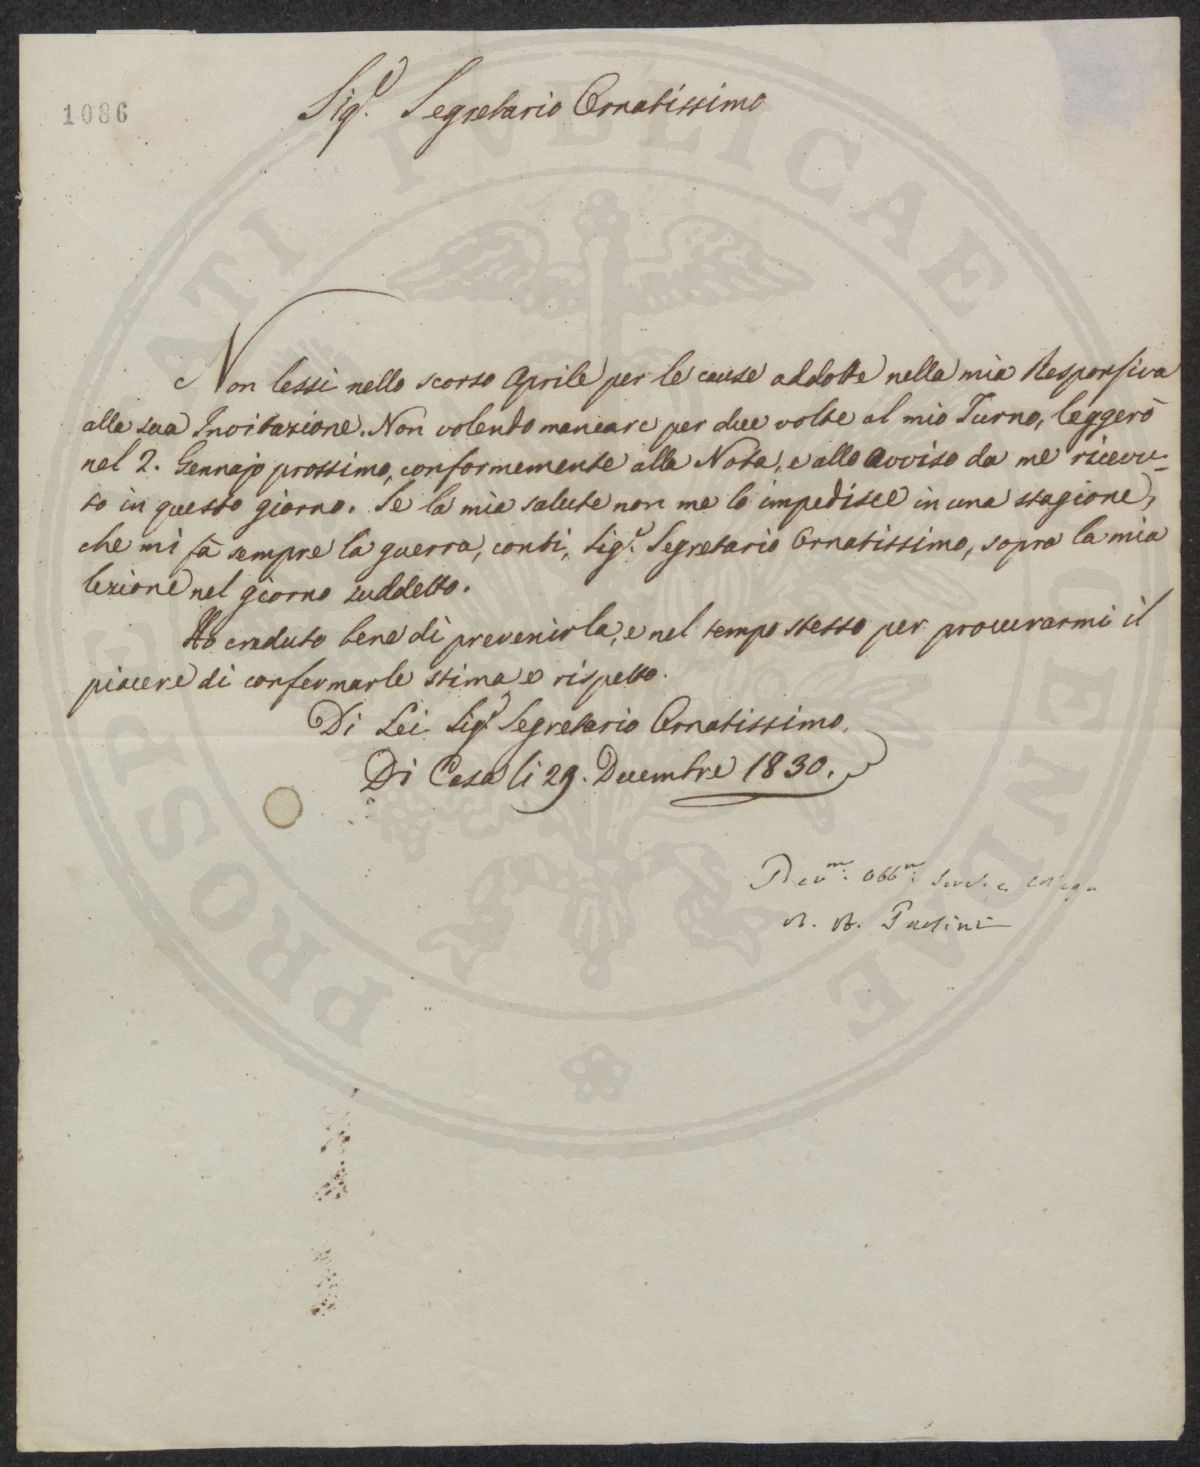 1086
Sig.r Segretario Ornatissimo
Non lessi nello scorso Aprile per le cause addotte nella mia Responsiva
alla sua Invitazione. Non volendo mancare per due volte al mio Turno, leggerò
nel 2. Gennajo prossimo, conformemente alla Nota, e allo avviso da me ricevu-
to in questo giorno. Se la mia salute non me lo impedisce in una stagione,
che mi fà sempre la guerra, conti, Sig.r Segretario Ornatissimo, sopra la mia
lezione nel giorno suddetto.
Ho creduto bene di prevenirla, e nel tempo stesso per procurarmi il
piacere di confermarle stima e rispetto.
Di Lei Sig.r Segretario Ornatissimo.
Di Casa li 29. Decembre 1830.
Dev.mo Obb.mo Serv. e Collega
A. A. Paolini
PROSPERITATI PUBLICAE AUGENDAE